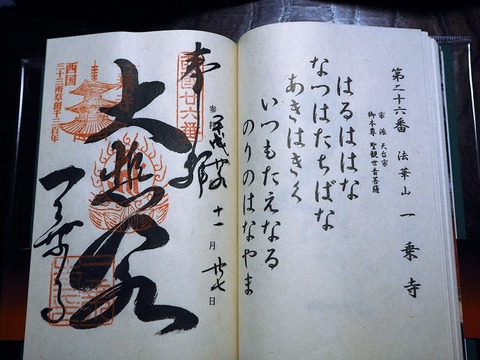 第二十六番 法華山 一乗寺
宗派 天台宗
御本尊 聖観世音菩薩
はるははな
なつはたちばな
あきはきく
いつもたえなる
のりのはなやま
奉拝
十一月廿七日
大悲閣
一乗寺
西国
三十三所草創千三百年